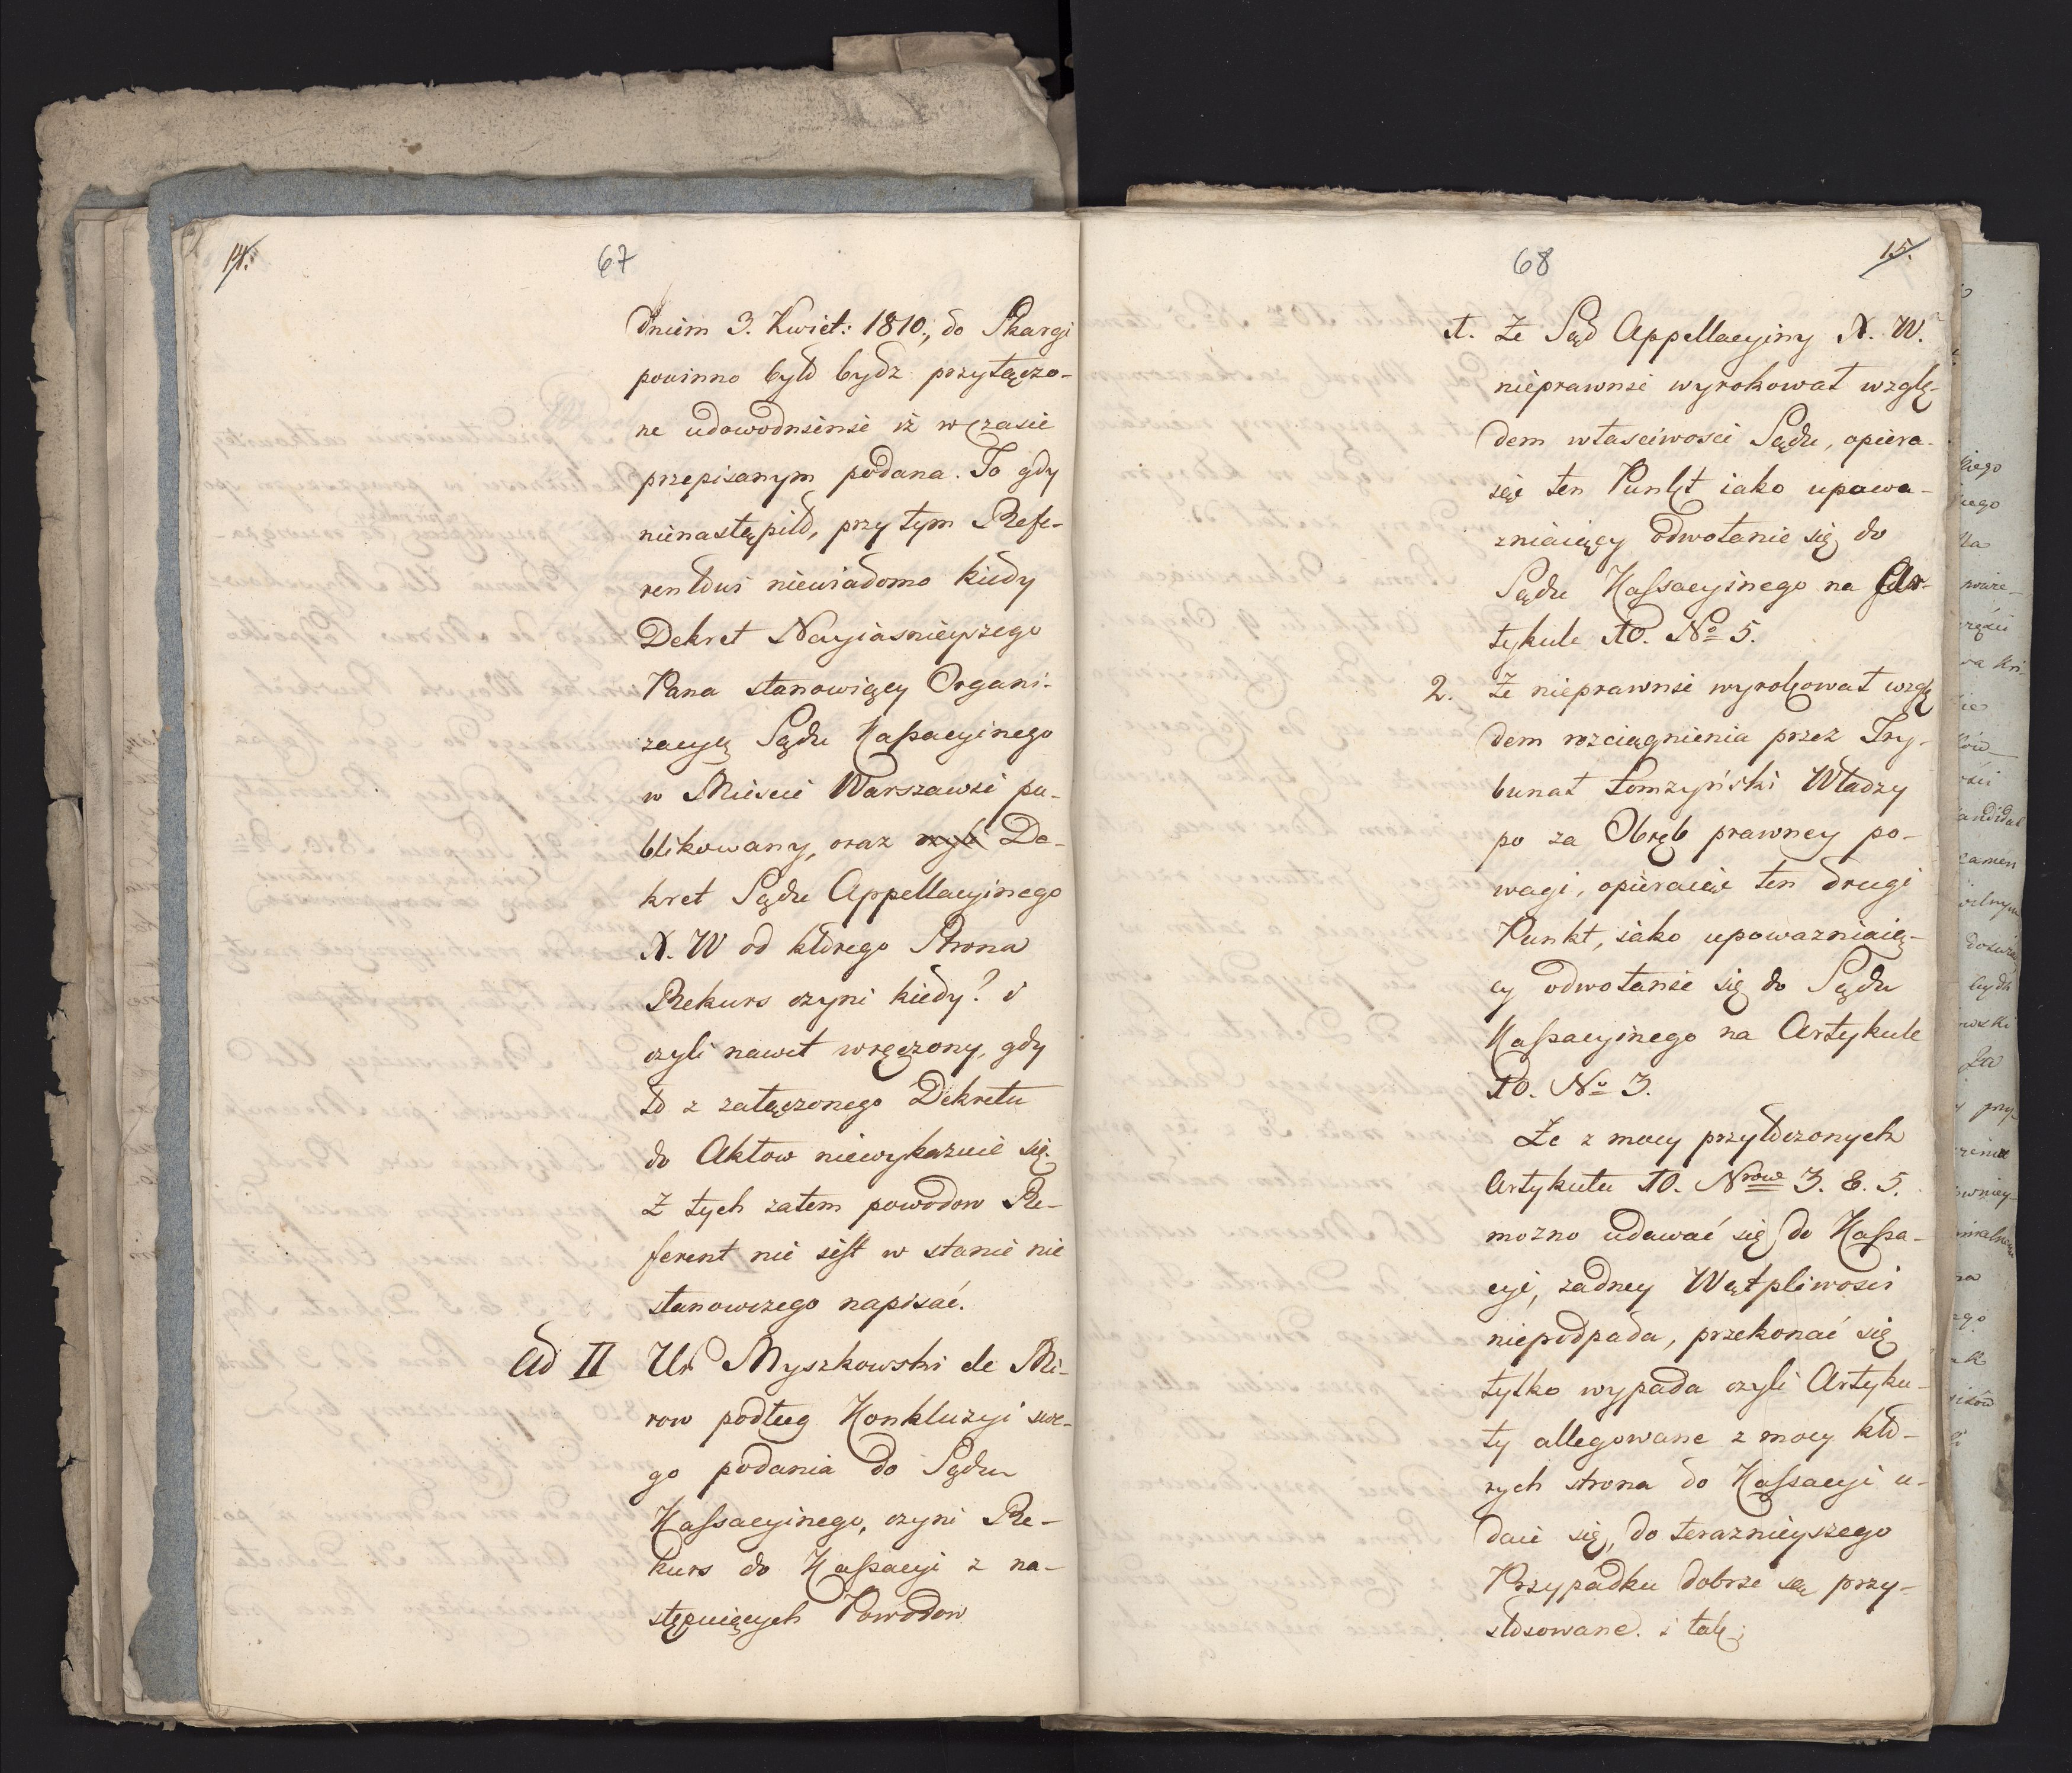 14.
67
dniem 3. Kwiet: 1810, do Skargi
powinno było bydz przyłączo-
ne udowodnienie iż w czasie
przepisanym podana. To gdy
nienastąpiło, przy tym Refe-
rentowi niewiadomo kiedy
Dekret Nayiasnieyszego
Pana stanowiący Organi-
zacyą Sądu Kassacyinego
w Miescie Warszawie pu-
blikowany, oraz czyli De-
kret Sądu Appellacyinego
X. W od którego Strona
Rekurs czyni kiedy? i
czyli nawet wręczony, gdy
to z załączonego Dekretu
do Aktow niewykazuie się.
Z tych zatem powodow Re-
ferent nie iest w stanie nic
stanowczego napisać.
Ad II Ur Myszkowski de Mi-
row podług Konkluzyi swe-
go podania do Sądu
Kassacyinego, czyni Re-
kurs do Kassacyi z na-
stępuiących Powodow
68
15.
1. Że Sąd Appellacyiny X. W.
nieprawnie wyrokował wzglę-
dem własciwosci Sądu, opiera-
iąc ten Punkt iako upowa-
zniaiący odwołanie się do
Sądu Kassacyinego na Ar-
tykule 10. No 5.
2. Że nieprawnie wyrokował wzglę
dem rozciągnienia przez Try-
bunał Łomzyński Władzy
po za Obręb prawney po-
wagi, opieraiąc ten drugi
Punkt, iako upowazniaią-
cy odwołanie się do Sądu
Kassacyinego na Artykule
10. No 3.
Że z mocy przytoczonych
Artykułu 10. Nrow 3. & 5.
mozno udawać się do Kassa-
cyi, zadney Wątpliwosci
niepodpada, przekonać się
tylko wypada czyli Artyku-
ły allegowane z mocy któ-
rych strona do Kassacyi u-
daie się, do teraznieyszego
Przypadku dobrze są przy-
stosowane. i tak;